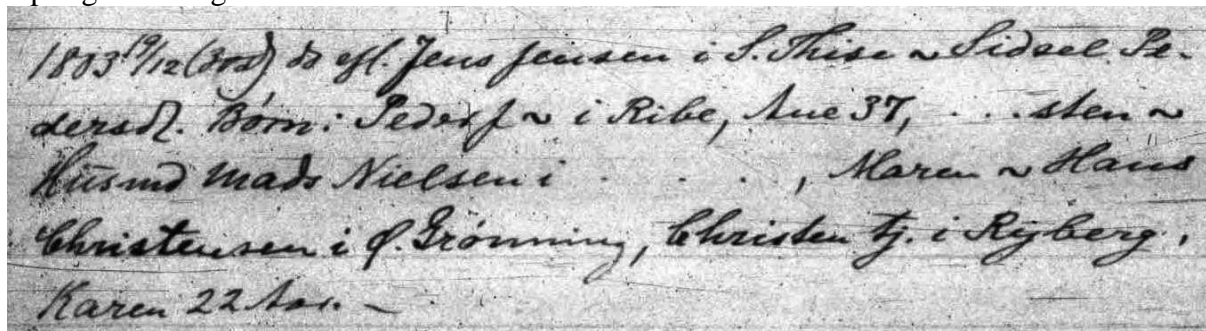 1803 19/12 (30s) do efl. Jens Jensen i S. Thise ~ Sidsel Pe-
dersd. Børn: Peder J ~ i Ribe, Ane 37, . . . sten ~
Husmd Mads Nielsen i . . . , Maren ~ Hans
Christensen i Ø. Grønning, Christen tj. i Ryberg,
Karen 22 Aar. —